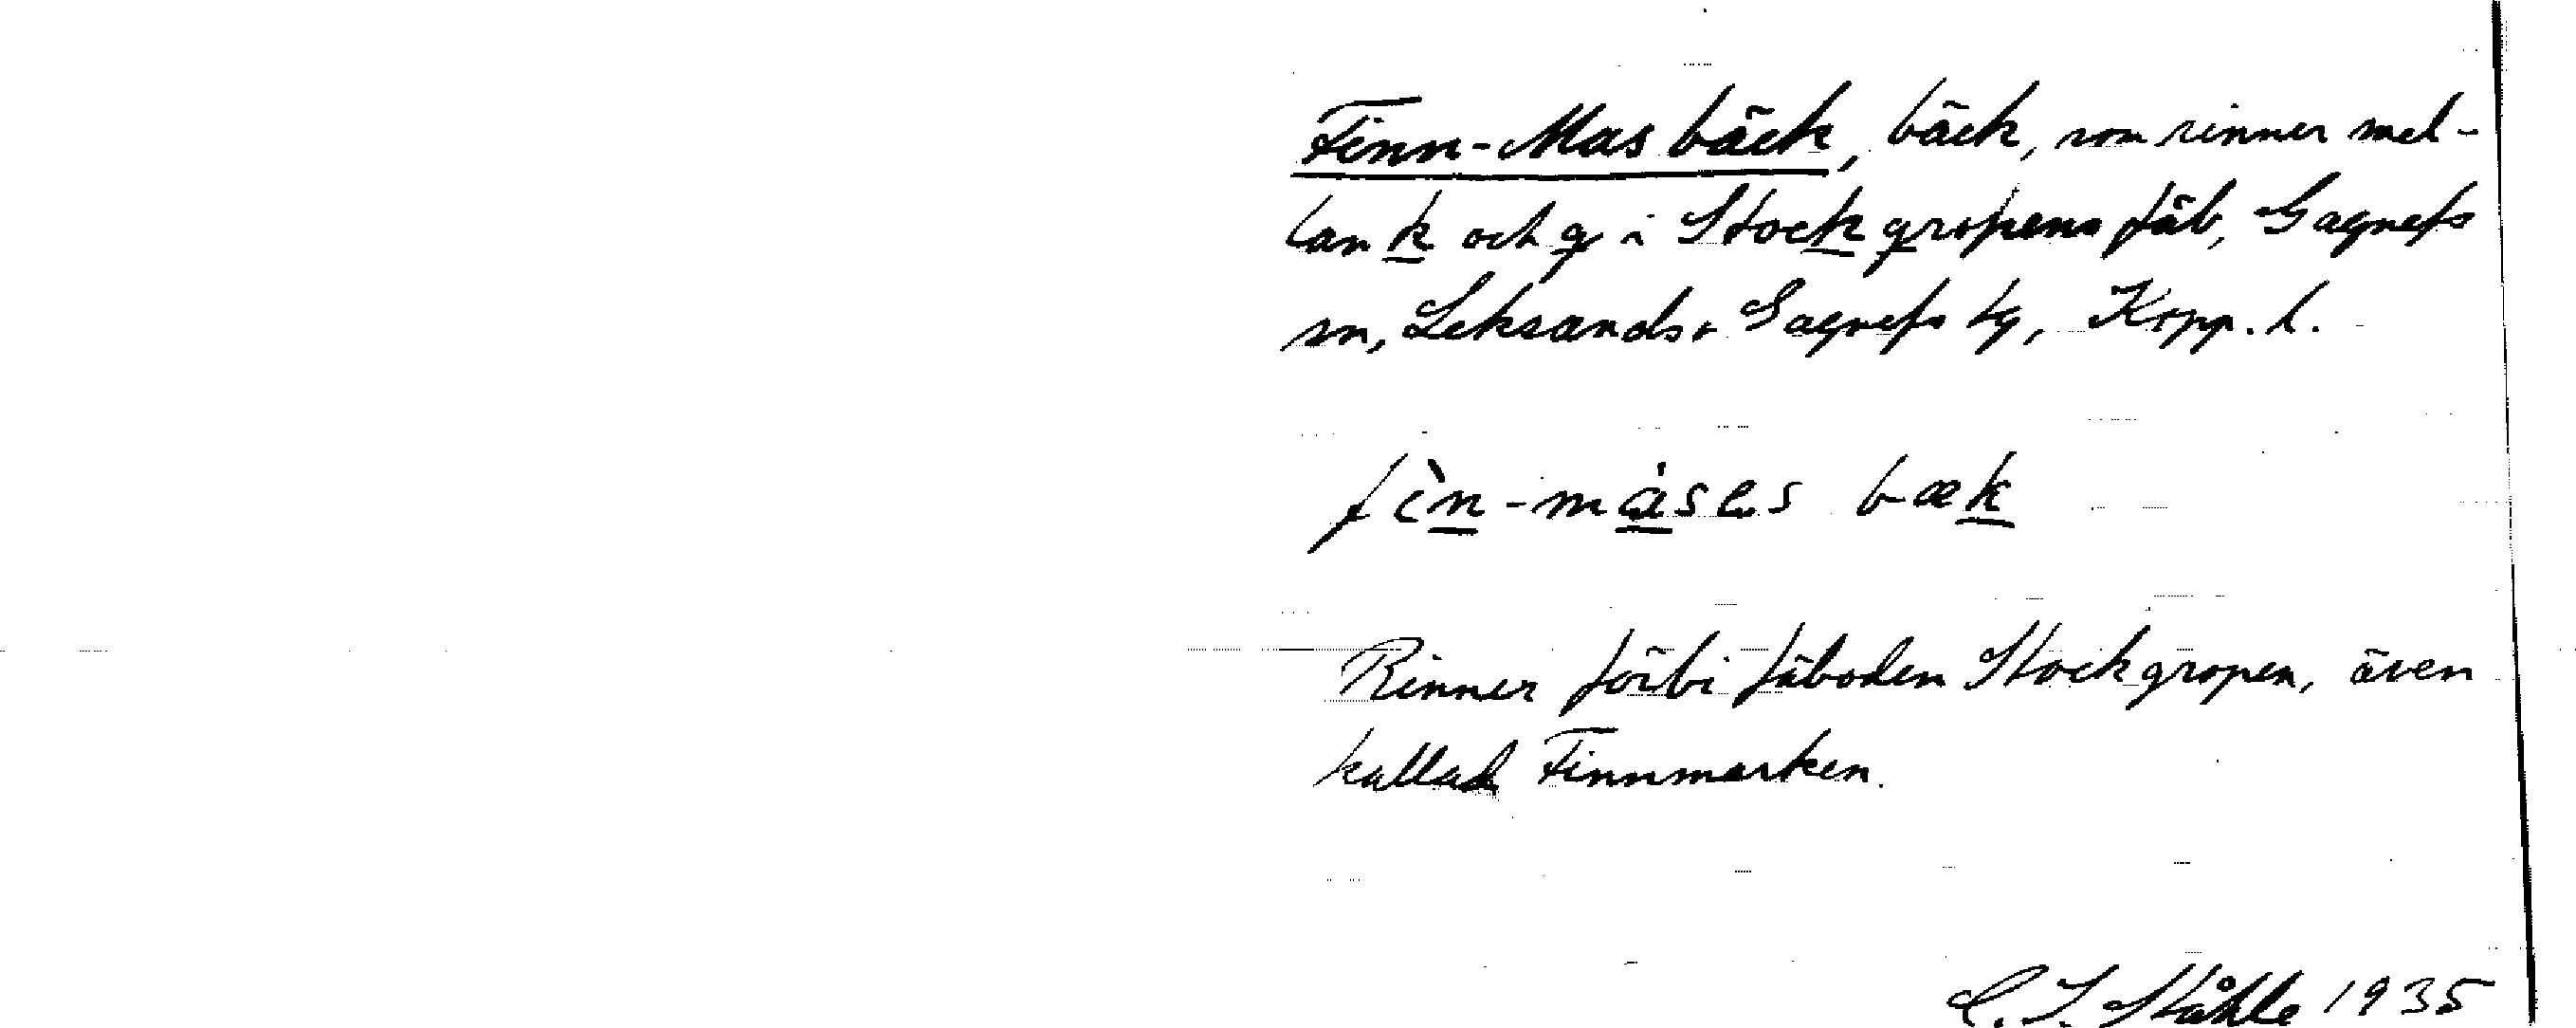 Finn-Mas bäck, bäck, som rinner mel-
lan k och g i Stockgropens fäb, Gagnefs
sn, Leksands o Gagnefs tg, Kopp. l.
fìn-måses bæk
Rinner förbi fäboden Stockgropen, även
kallad Finnmarken.
C. I. Ståhle 1935